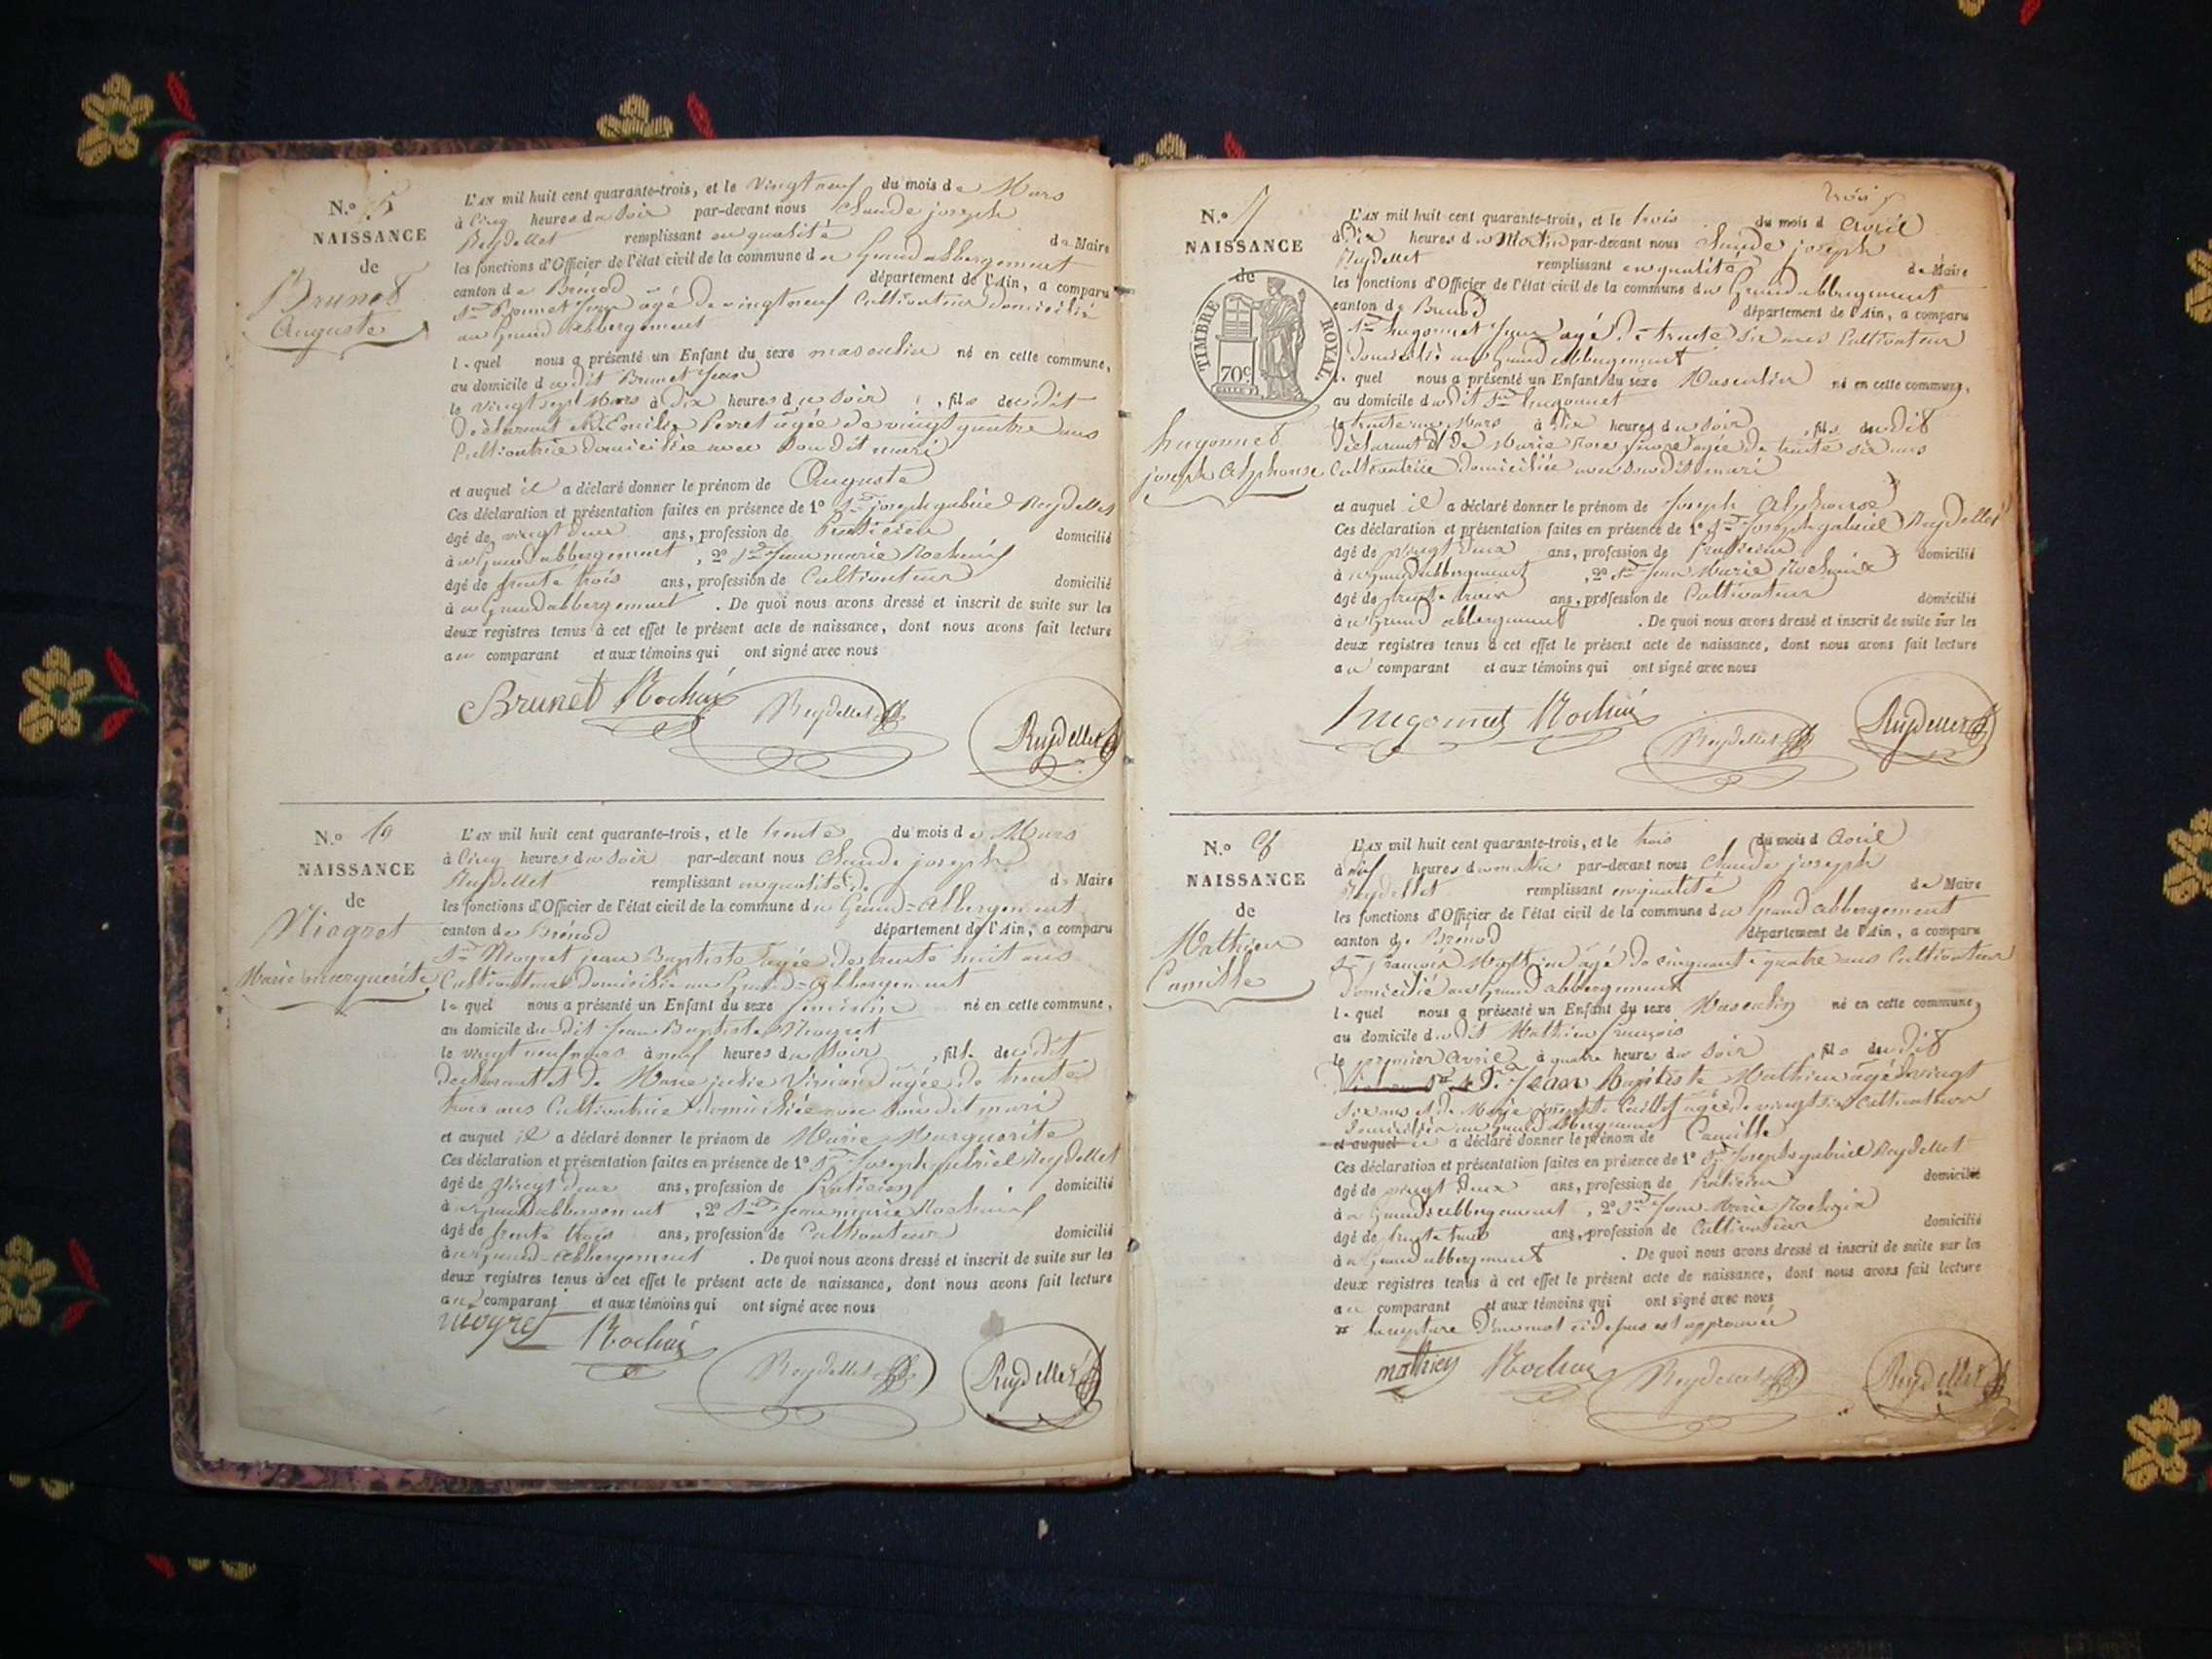 N.o 5
NAISSANCE
de
Brunet
Auguste
L'AN mil huit cent quarante-trois, et le vingt neuf du mois de Mars
à Cinq heures du Soir par-devant nous Claude joseph
Reydellet remplissant en qualité de Maire
les fonctions d'Officier de l'état civil de la commune du Grand abbergement
canton de Brénod département de l'Ain, a comparu
Sr Brunet Jean âgé de vingt neuf Cultivateur domicilié
au Grand abbergement
lequel nous a présenté un Enfant du sexe masculin né en cette commune,
au domicile dudit Brunet Jean
le vingt sept Mars à dix heures du Soir, fils dudit
déclarant et d'Emilie Perret âgée de vingt quatre ans
Cultivatrice domiciliée avec Son dit mari
et auquel il a déclaré donner le prénom de Auguste
Ces déclaration et présentation faites en présence de 1º Sr joseph gabriel Reydellet
âgé de vingt deux ans, profession de Praticien domicilié
à au Grand abbergement, 2º Sr Jean marie Rochaix
âgé de trente trois ans, profession de Cultivateur domicilié
à au Grand abbergement. De quoi nous avons dressé et inscrit de suite sur les
deux registres tenus à cet effet le présent acte de naissance, dont nous avons fait lecture
au comparant et aux témoins qui ont signé avec nous
Brunet Rochaix Reydellet Reydellet
N.o 6
NAISSANCE
de
Niogret
Marie marguerite
L'AN mil huit cent quarante-trois, et le trente du mois de Mars
à Cinq heures du Soir par-devant nous Claude joseph
Reydellet remplissant en qualité de Maire
les fonctions d'Officier de l'état civil de la commune du Grand-Abbergement
canton de Brénod département de l'Ain, a comparu
Sr Niogret jean Baptiste âgée de trente huit ans
Cultivateur domicilié au Grand-Abbergement
lequel nous a présenté un Enfant du sexe féminin né en cette commune,
au domicile dudit Jean Baptiste Niogret
le vingt neuf mars à neuf heures du Soir, fille dudit
déclarant et de Marie julie Viviand âgée de trente
trois ans Cultivatrice domiciliée avec Son dit mari
et auquel il a déclaré donner le prénom de Marie Marguerite
Ces déclaration et présentation faites en présence de 1º Sr Joseph gabriel Reydellet
âgé de vingt deux ans, profession de Praticien domicilié
à au Grand abbergement, 2º Sr Jean marie Rochaix
âgé de trente trois ans, profession de Cultivateur domicilié
à au Grand-Abbergement. De quoi nous avons dressé et inscrit de suite sur les
deux registres tenus à cet effet le présent acte de naissance, dont nous avons fait lecture
au comparant et aux témoins qui ont signé avec nous
niogret Rochaix Reydellet Reydellet
trois
N.o 7
NAISSANCE
de
TIMBRE ROYAL.
70c
hugonnet
joseph Alphonse
L'AN mil huit cent quarante-trois, et le trois du mois d Avril
à Dix heures du Matin par-devant nous Claude joseph
Reydellet remplissant en qualité de Maire
les fonctions d'Officier de l'état civil de la commune du Grand abbergement
canton de Brénod département de l'Ain, a comparu
Sr hugonnet Jean âgé de trente six ans Cultivateur
domicilié au Grand abbergement
lequel nous a présenté un Enfant du sexe Masculin né en cette commune,
au domicile dudit Sr hugonnet
le trente un Mars à dix heures du Soir, fils dudit
déclarant et de Marie Rose âgée de trente six ans
Cultivatrice domiciliée avec Son dit mari
et auquel il a déclaré donner le prénom de Joseph Alphonse
Ces déclaration et présentation faites en présence de 1º Sr Joseph gabriel Reydellet
âgé de vingt deux ans, profession de Praticien domicilié
à au Grand abbergement, 2º Sr Jean Marie Rochaix
âgé de trente trois ans, profession de Cultivateur domicilié
à au Grand abbergement. De quoi nous avons dressé et inscrit de suite sur les
deux registres tenus à cet effet le présent acte de naissance, dont nous avons fait lecture
au comparant et aux témoins qui ont signé avec nous
hugonnet Rochaix Reydellet Reydellet
N.o 8
NAISSANCE
de
Mathieu
Camille
L'AN mil huit cent quarante-trois, et le trois du mois d Avril
à heures du matin par-devant nous Claude joseph
Reydellet remplissant en qualité de Maire
les fonctions d'Officier de l'état civil de la commune du Grand abbergement
canton de Brénod département de l'Ain, a comparu
Sr françois Mathieu âgé de cinquante quatre ans Cultivateur
domicilié au Grand abbergement
lequel nous a présenté un Enfant du sexe Masculin né en cette commune,
au domicile dudit Mathieu françois
le premier Avril à quatre heures du Soir, fils dudit
Jean Baptiste Mathieu âgé de vingt
six ans et de Marie âgée de vingt six Cultivateurs
domiciliés au grand abbergement
et auquel il a déclaré donner le prénom de Camille
Ces déclaration et présentation faites en présence de 1º Sr Joseph gabriel Reydellet
âgé de vingt deux ans, profession de Praticien domicilié
à au Grand abbergement, 2º Sr Jean Marie Rochaix
âgé de trente trois ans, profession de Cultivateur domicilié
à au Grand abbergement. De quoi nous avons dressé et inscrit de suite sur les
deux registres tenus à cet effet le présent acte de naissance, dont nous avons fait lecture
au comparant et aux témoins qui ont signé avec nous
la rupture d'un mot ci dessus est approuvée
mathieu Rochaix Reydellet Reydellet